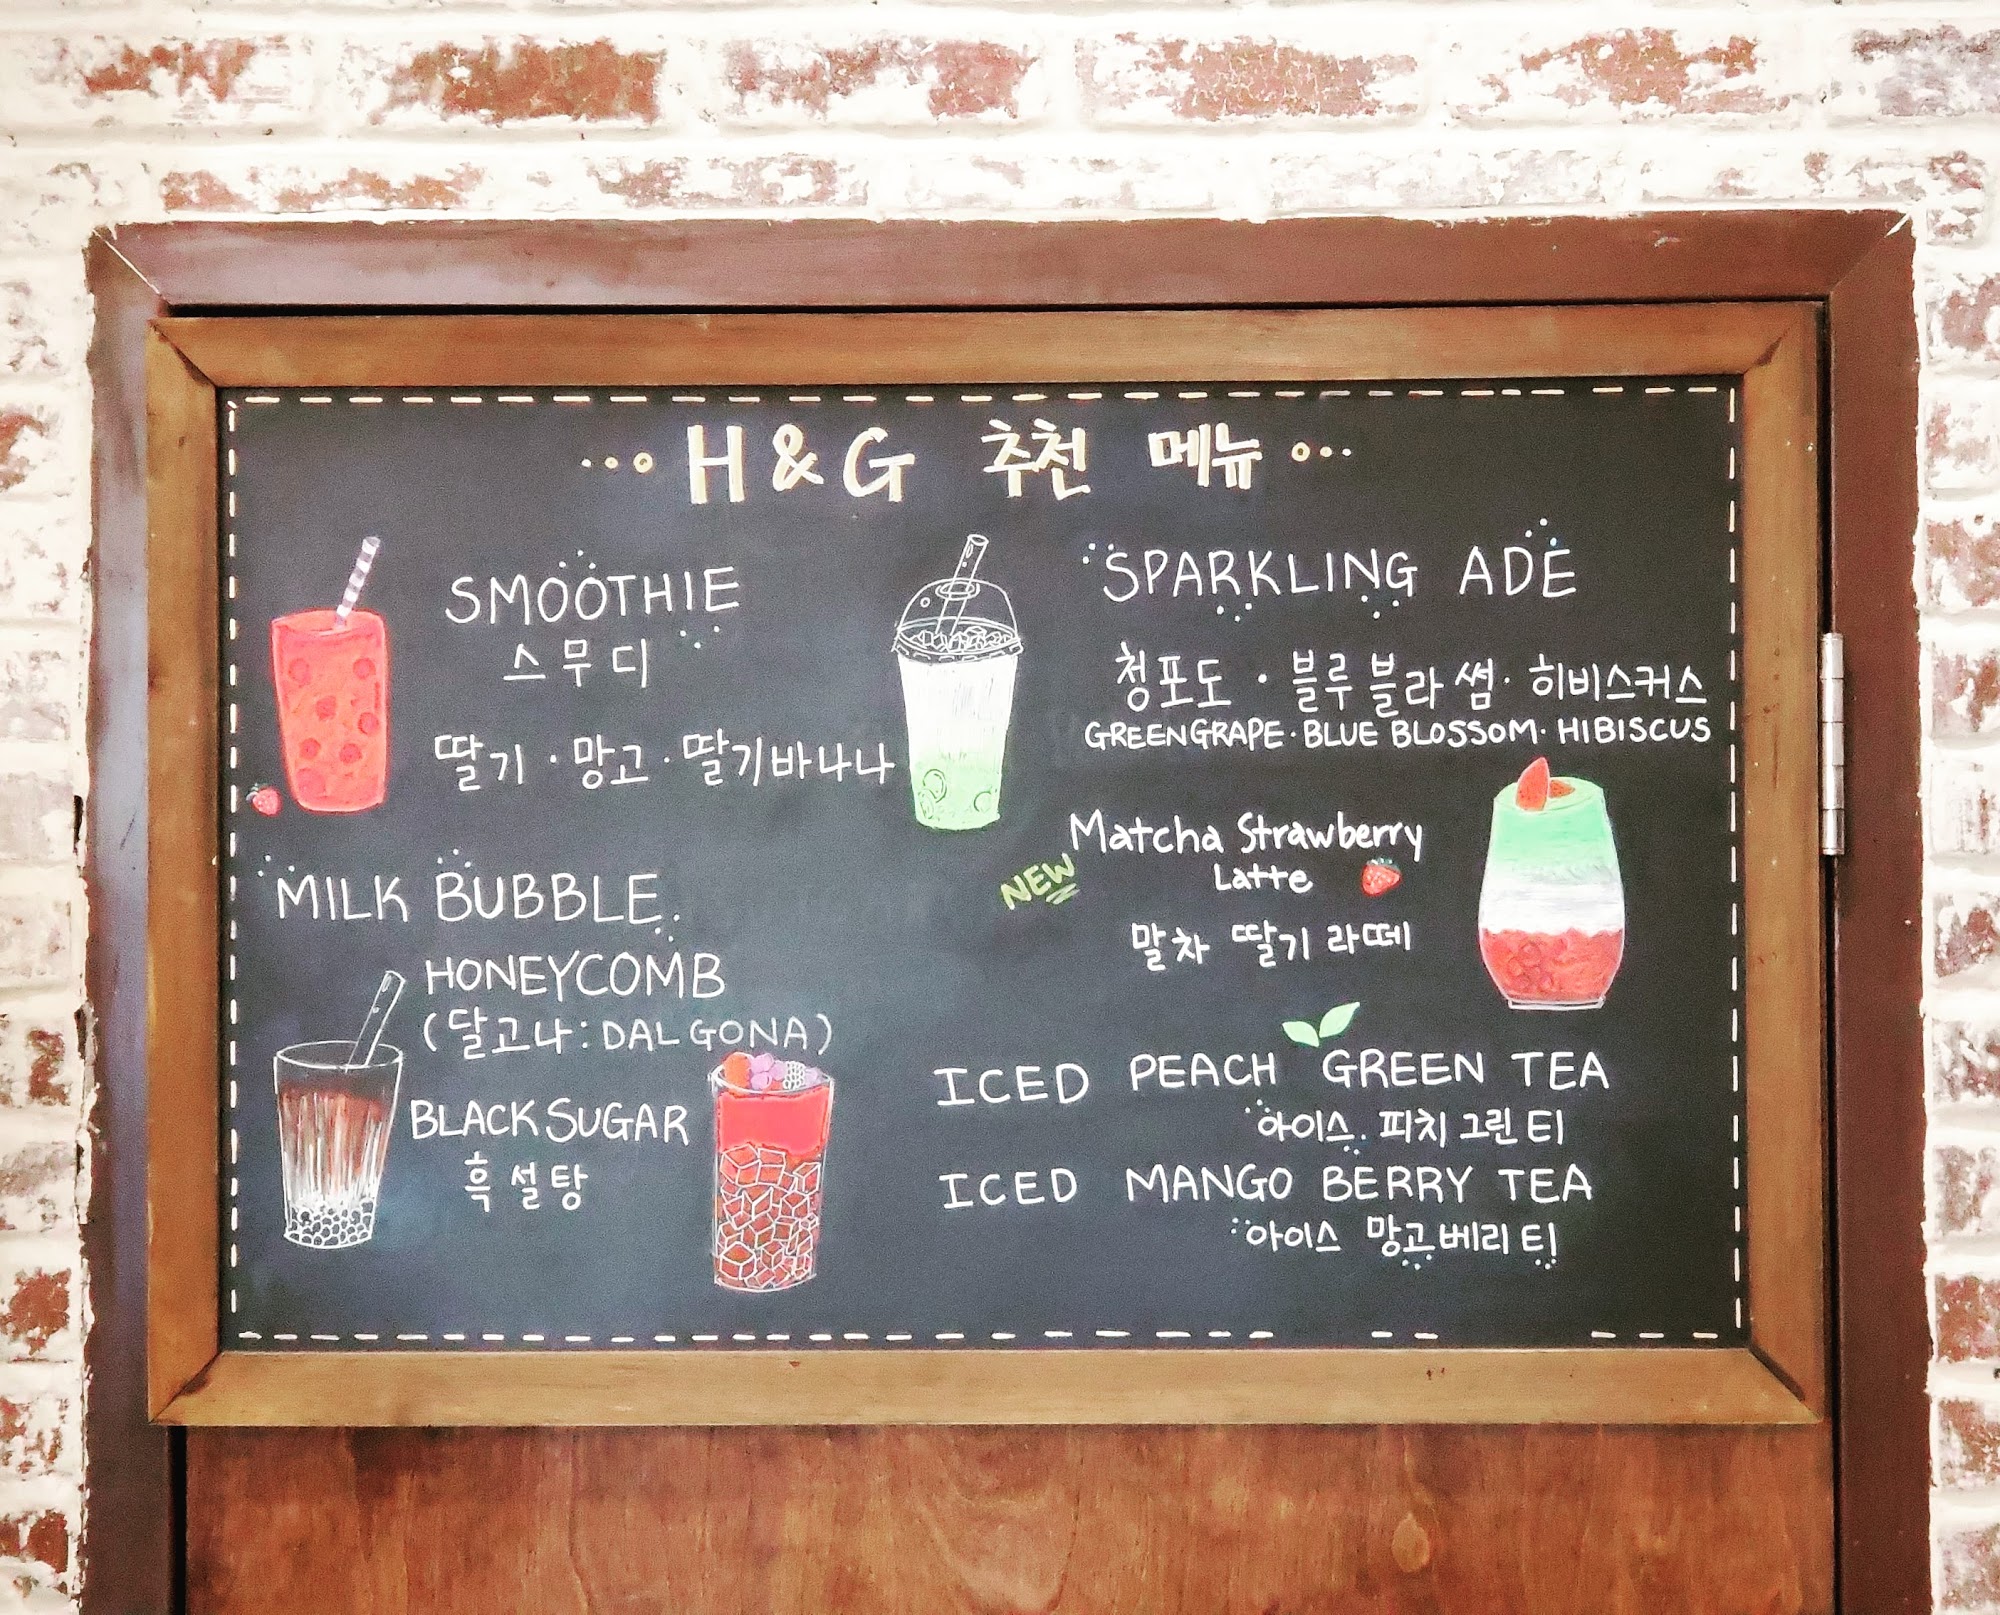 H & G 추천 메뉴
SMOOTHIE
스무디
딸기 · 망고 · 딸기바나나
MILK BUBBLE.
HONEYCOMB
(달고나: DALGONA)
BLACK SUGAR
흑설탕
SPARKLING ADE
청포도 · 블루블라썸 · 히비스커스
GREENGRAPE · BLUE BLOSSOM · HIBISCUS
NEW
Matcha Strawberry
Latte
말차 딸기 라떼
ICED PEACH GREEN TEA
아이스 피치 그린 티
ICED MANGO BERRY TEA
아이스 망고베리 티